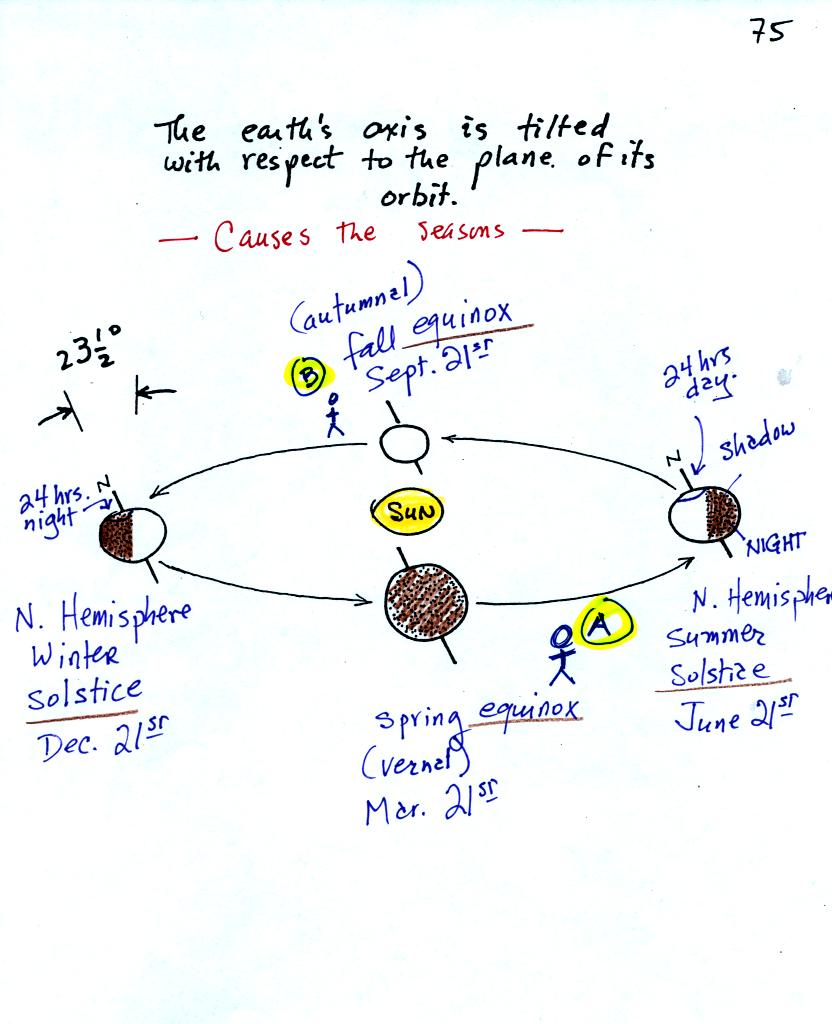 75
The earth's axis is tilted
with respect to the plane of its
orbit.
— Causes the seasons —
(autumnal)
fall equinox
Sept. 21st
B
23½°
24 hrs
day.
N
shadow
NIGHT
24 hrs.
night
N
SUN
N. Hemisphere
Winter
Solstice
Dec. 21st
A
N. Hemispher
Summer
Solstice
June 21st
spring equinox
(vernal)
Mar. 21st